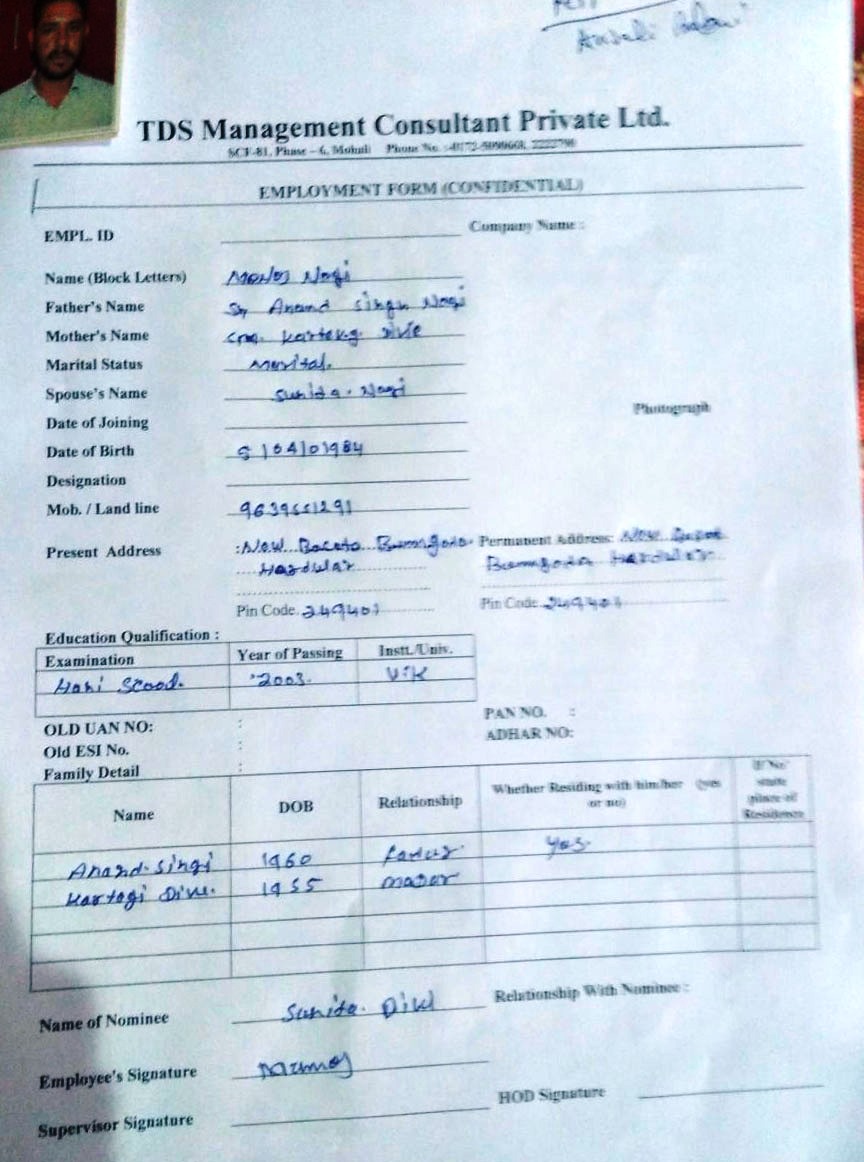 TDS Management Consultant Private Ltd.
SCF-81, Phase – 6, Mohali Phone No. :-0172-5099668, 2222798
EMPLOYMENT FORM (CONFIDENTIAL)
EMPL. ID Company Name :
Name (Block Letters) Manoj Nagi
Father's Name Anand Singh Nagi
Mother's Name
Marital Status Marital.
Spouse's Name Sunita. Nagi
Date of Joining
Date of Birth 5/04/01984
Designation
Mob. / Land line 9639551291
Present Address :New Permanent Address: New
Hardwar Hardwar
Pin Code. 249401 Pin Code. 249401
Education Qualification :
Examination Year of Passing Instt./Univ.
2003. U.K
OLD UAN NO: : PAN NO. :
Old ESI No. : ADHAR NO:
Family Detail :
Name DOB Relationship Whether Residing with him/her (yes or no) If 'No' state place of Residence
Anand Singi 1960 Yes
Kartagi Divi. 1955
Name of Nominee Sunita. Relationship With Nominee :
Employee's Signature
Supervisor Signature HOD Signature